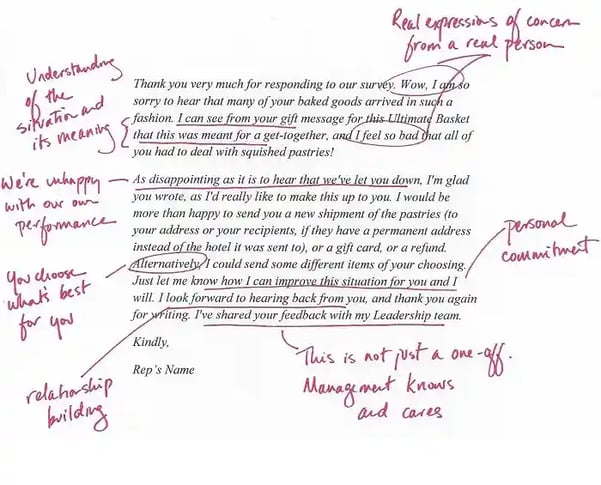 Real expressions of concern
from a real person
Understanding
of the
situation and
its meaning
Thank you very much for responding to our survey. Wow, I am so
sorry to hear that many of your baked goods arrived in such a
fashion. I can see from your gift message for this Ultimate Basket
that this was meant for a get-together, and I feel so bad that all of
you had to deal with squished pastries!
We're unhappy
with our own
performance
As disappointing as it is to hear that we've let you down, I'm glad
you wrote, as I'd really like to make this up to you. I would be
more than happy to send you a new shipment of the pastries (to
your address or your recipients, if they have a permanent address
instead of the hotel it was sent to), or a gift card, or a refund.
Alternatively, I could send some different items of your choosing.
Just let me know how I can improve this situation for you and I
will. I look forward to hearing back from you, and thank you again
for writing. I've shared your feedback with my Leadership team.
personal
commitment
You choose
what's best
for you
Kindly,
Rep's Name
This is not just a one-off.
Management knows
and cares
relationship
building